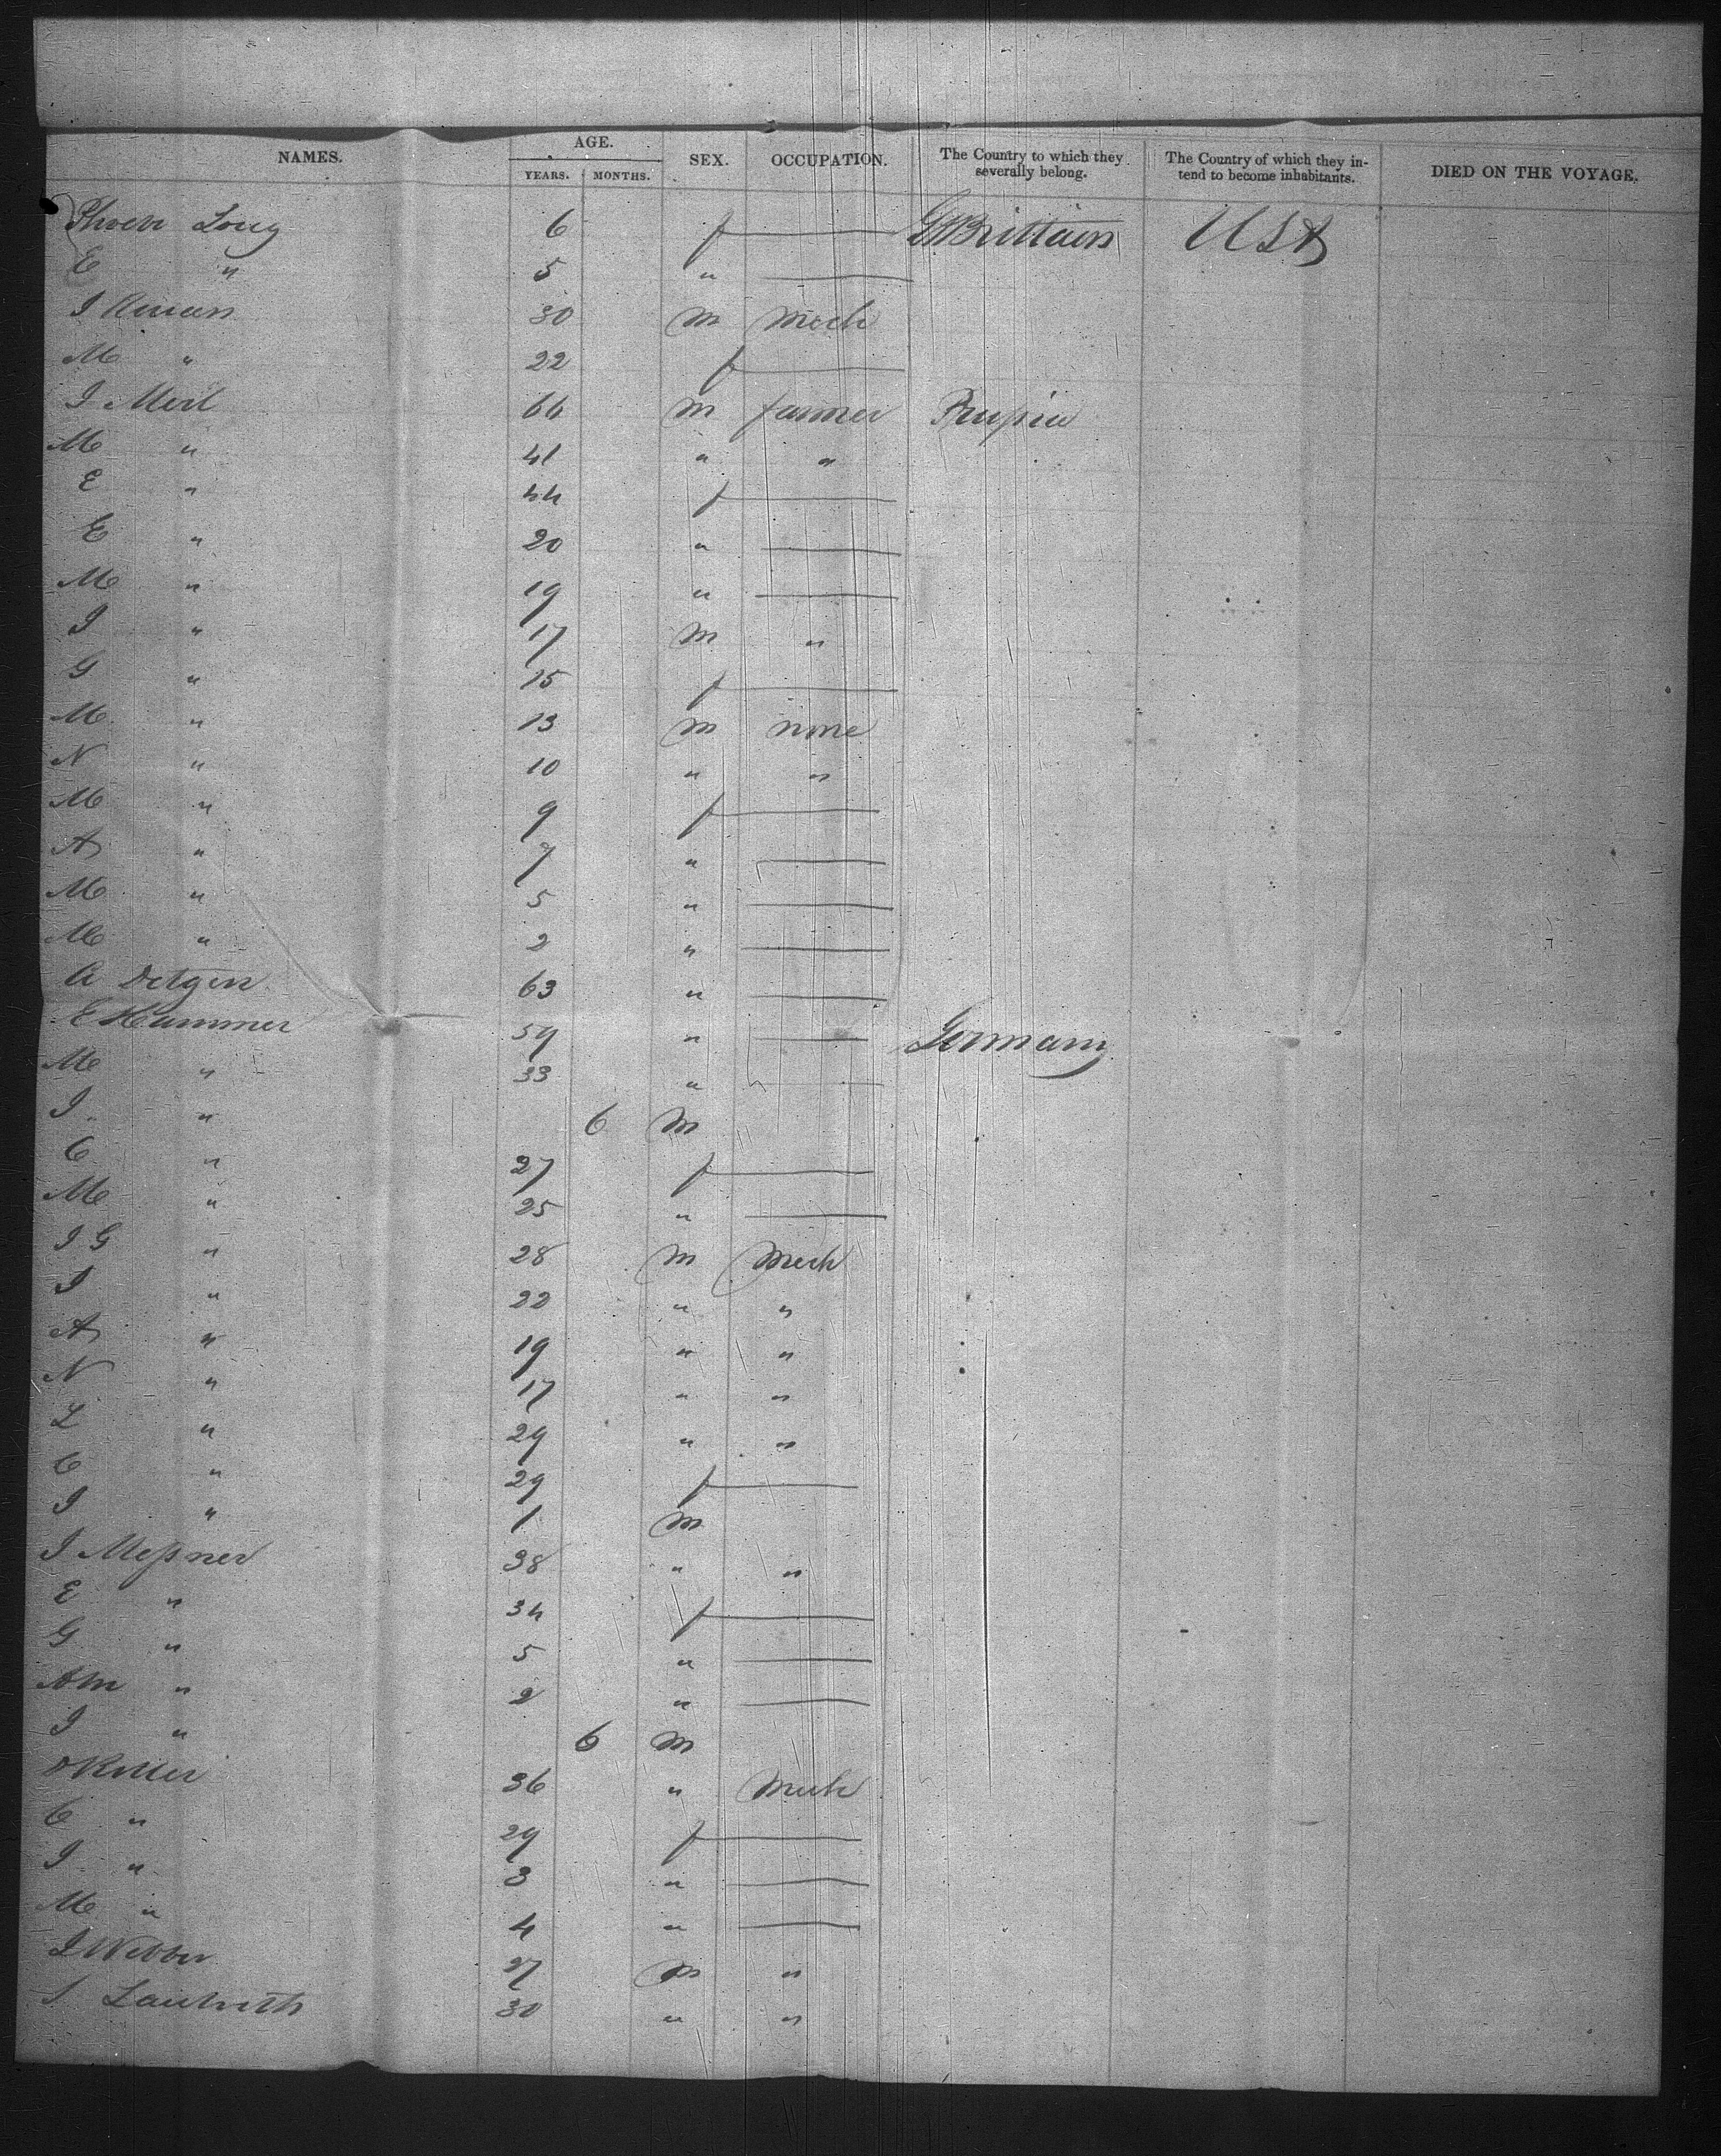 NAMES. AGE. SEX. OCCUPATION. The Country to which they severally belong. The Country of which they intend to become inhabitants. DIED ON THE VOYAGE.
YEARS. MONTHS.
Long 6 f — Gt Brittain USA
E " 5 " —
I 30 m Mech
M " 22 f —
I Meil 66 m farmer Prussia
M " 41 " "
E " 44 f —
E " 20 " —
M " 19 " —
I " 17 m "
G " 15 f —
M " 13 m none
N " 10 " "
M " 9 f —
A " 7 " —
M " 5 " —
M " 2 " —
A Detgen 63 " —
E Hammer 59 " — Germany
M " 33 " —
I " 6 m
C " 27 f —
M " 25 " —
I G " 28 m Mech
I " 22 " "
A " 19 " "
N " 17 " "
L " 29 " "
C " 29 f —
I " 1 m
I Messner 38 " "
E " 34 f —
G " 5 " —
AM " 2 " —
I " 6 m
36 " Mech
C " 29 f —
I " 3 " —
M " 4 " —
I Webber 27 m "
30 " "